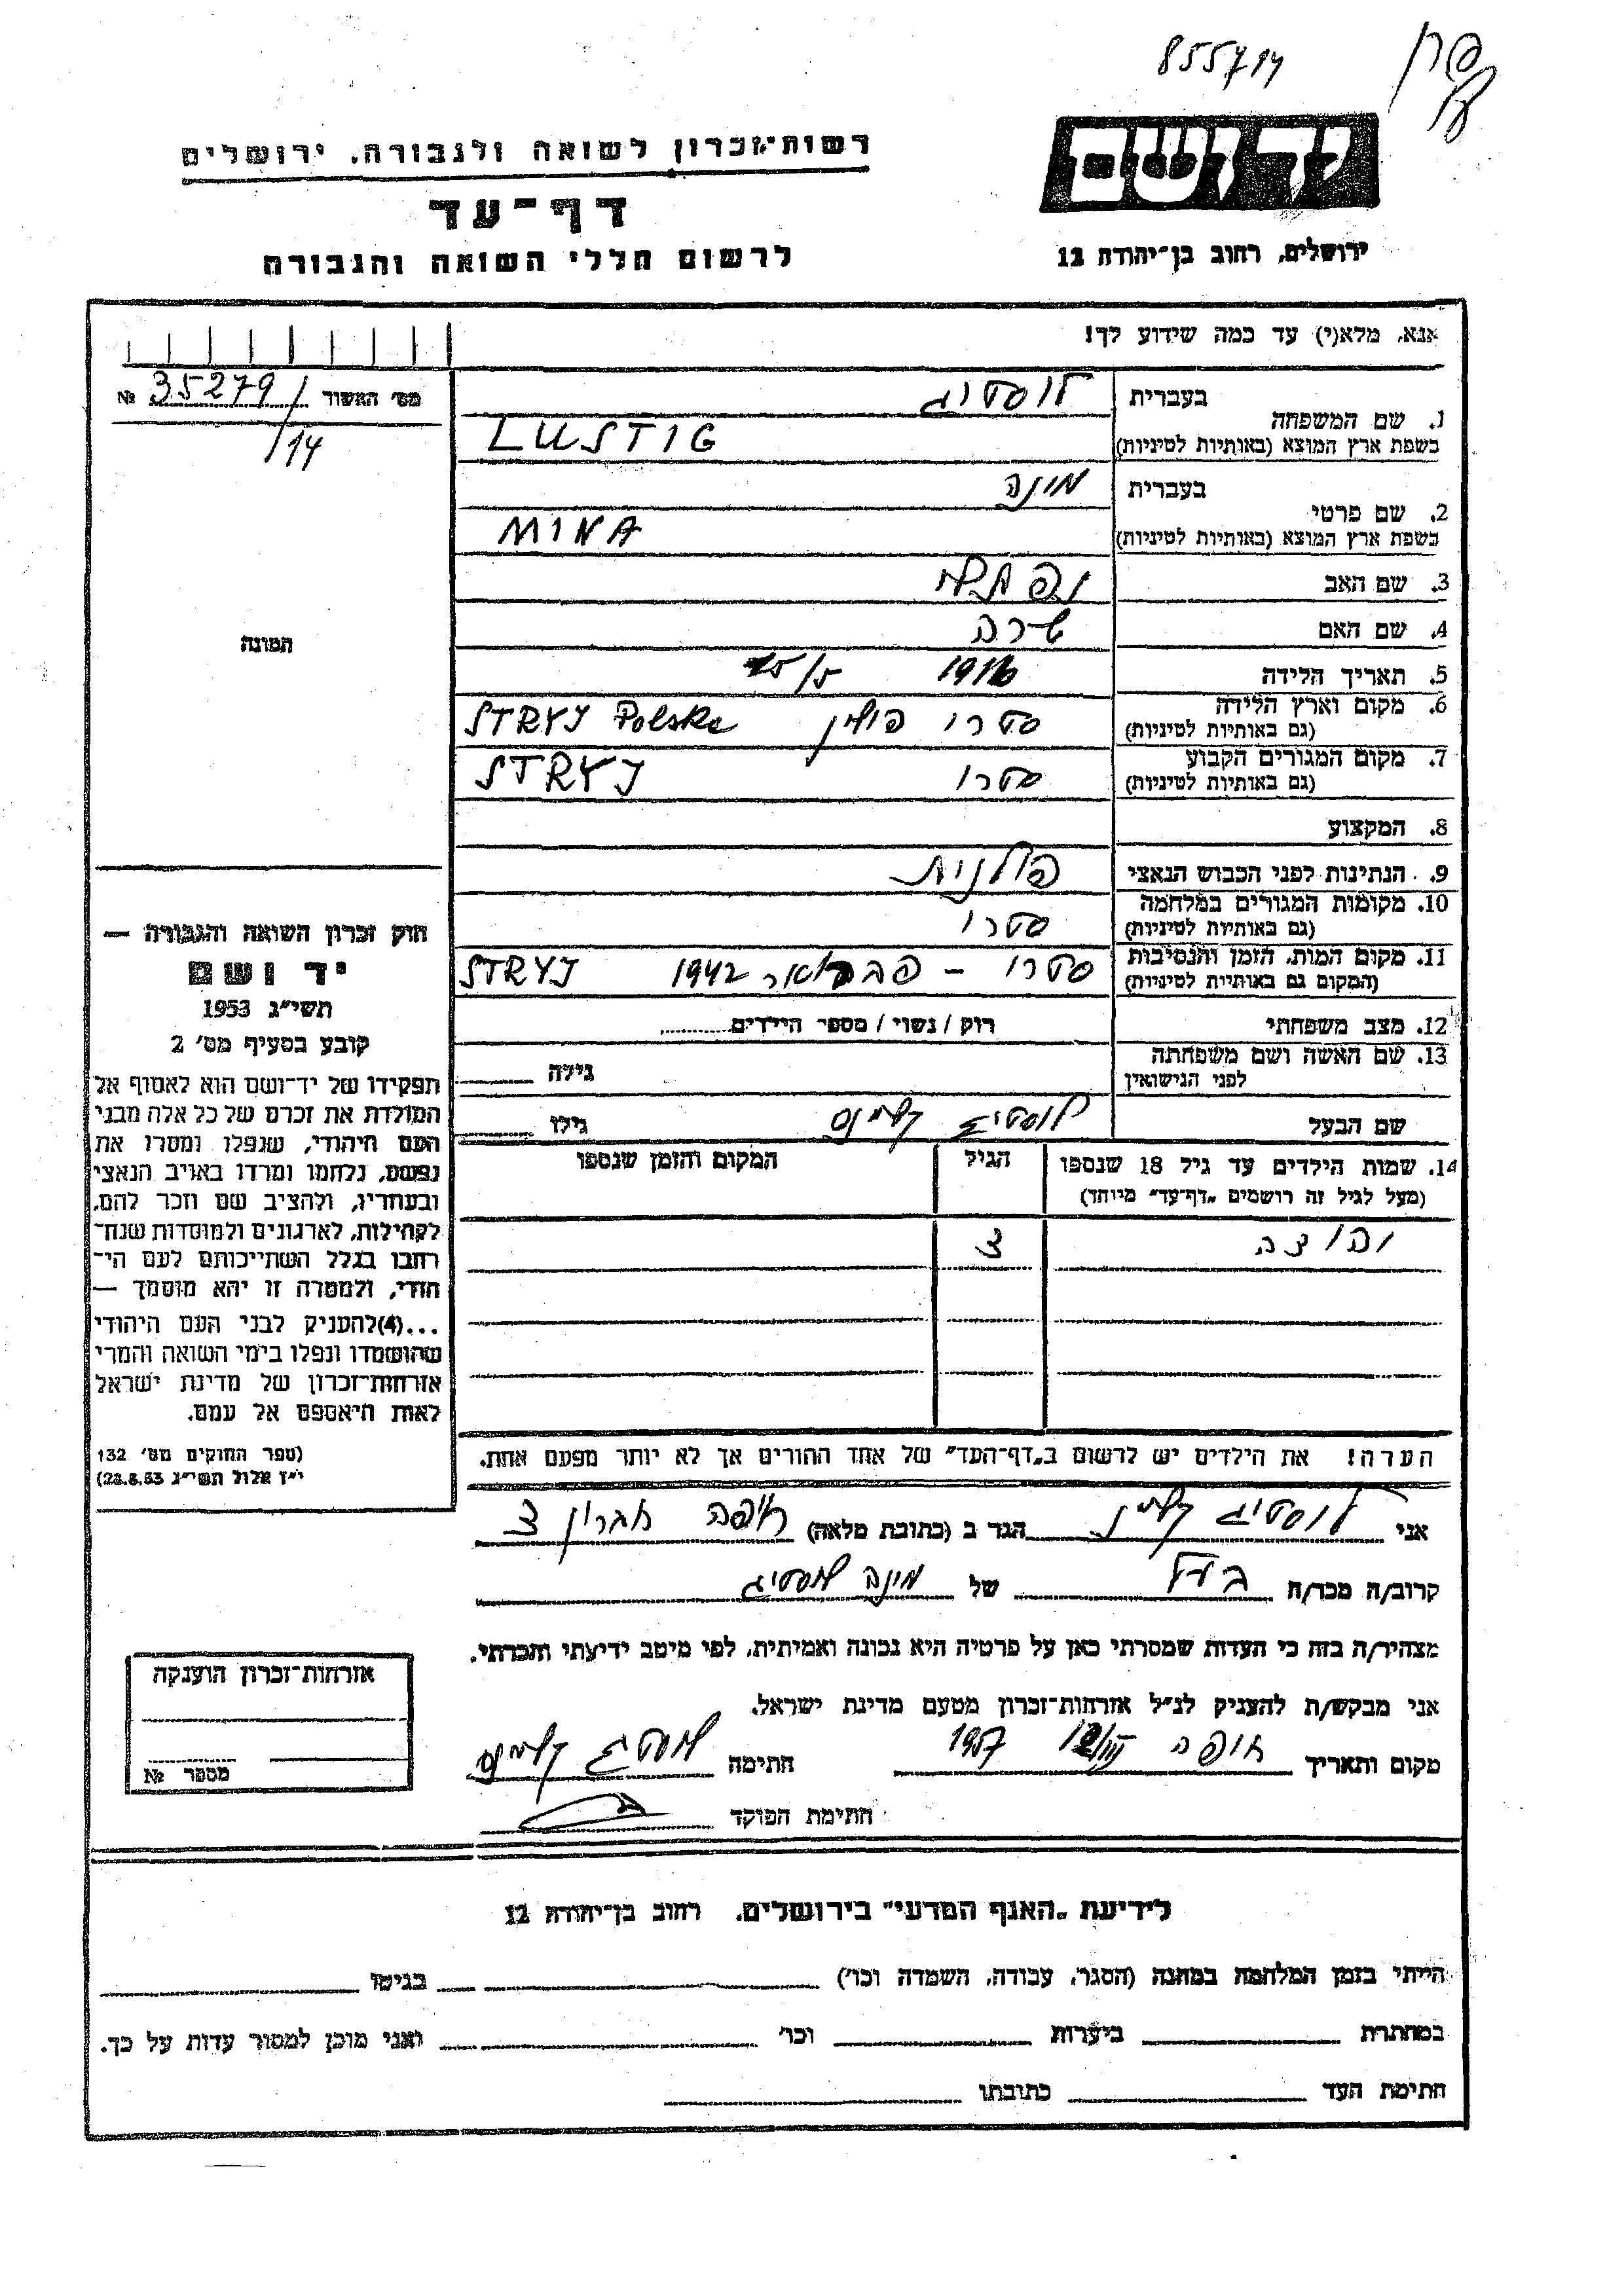 855714
יד ושם
רשות-זכרון לשואה ולגבורה, ירושלים
דף-עד
לרשום חללי השואה והגבורה
ירושלים, רחוב בן-יהודה 12
אנא, מלא(י) עד כמה שידוע לך!
מס' האשור 35279 №
/14
התמונה
1. שם המשפחה
בעברית לוסטיג
בשפת ארץ המוצא (באותיות לטיניות) LUSTIG
2. שם פרטי
בעברית מינה
בשפת ארץ המוצא (באותיות לטיניות) MINA
3. שם האב נפתלי
4. שם האם שרה
5. תאריך הלידה 1916
6. מקום וארץ הלידה
(גם באותיות לטיניות) סטרי פולין STRYJ Polska
7. מקום המגורים הקבוע
(גם באותיות לטיניות) סטרי STRYJ
8. המקצוע
9. הנתינות לפני הכבוש הנאצי פולנית
10. מקומות המגורים במלחמה
(גם באותיות לטיניות) סטרי
11. מקום המות, הזמן והנסיבות
(המקום גם באותיות לטיניות) סטרי – פברואר 1942 STRYJ
12. מצב משפחתי רוק / נשוי / מספר הילדים
13. שם האשה ושם משפחתה
לפני הנישואין גילה
שם הבעל לוסטיג גילו
14. שמות הילדים עד גיל 18 שנספו הגיל המקום והזמן שנספו
(מעל לגיל זה רושמים „דף-עד" מיוחד)
3
הערה! את הילדים יש לרשום ב„דף-העד" של אחד ההורים אך לא יותר מפעם אחת.
חוק זכרון השואה והגבורה —
יד ושם
תשי"ג 1953
קובע בסעיף מס' 2
תפקידו של יד-ושם הוא לאסוף אל
המולדת את זכרם של כל אלה מבני
העם היהודי, שנפלו ומסרו את
נפשם, נלחמו ומרדו באויב הנאצי
ובעוזריו, ולהציב שם וזכר להם,
לקהילות, לארגונים ולמוסדות שנח-
רבו בגלל השתייכותם לעם הי-
הודי, ולמטרה זו יהא מוסמך —
...(4) להעניק לבני העם היהודי
שהושמדו ונפלו בימי השואה והמרי
אזרחות-זכרון של מדינת ישראל
לאות היאספם אל עמם.
(ספר החוקים מס' 132
י"ז אלול תשי"ג 28.8.53)
אני לוסטיג הגר ב (כתובת מלאה) חיפה
קרוב/ה מכר/ה בעל של מינה לוסטיג
מצהיר/ה בזה כי העדות שמסרתי כאן על פרטיה היא נכונה ואמיתית, לפי מיטב ידיעתי והכרתי.
אני מבקש/ת להעניק לנ"ל אזרחות-זכרון מטעם מדינת ישראל.
מקום ותאריך חיפה 1957 חתימה לוסטיג
חתימת הפוקד
אזרחות-זכרון הוענקה
מספר №
לידיעת „האגף המדעי" בירושלים, רחוב בן-יהודה 12
הייתי בזמן המלחמה במחנה (הסגר, עבודה, השמדה וכו') בגיטו
במחתרת ביערות וכו' ואני מוכן למסור עדות על כך.
חתימת העד כתובתו